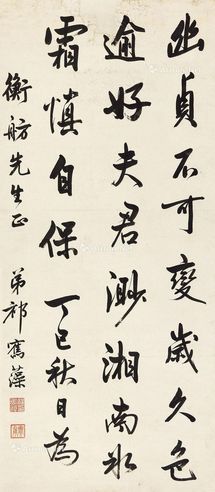 幽貞不可變歲久色
逾好夫君渺湘南冰
霜慎自保 丁巳秋日為
衡舫先生正 弟祁寯藻